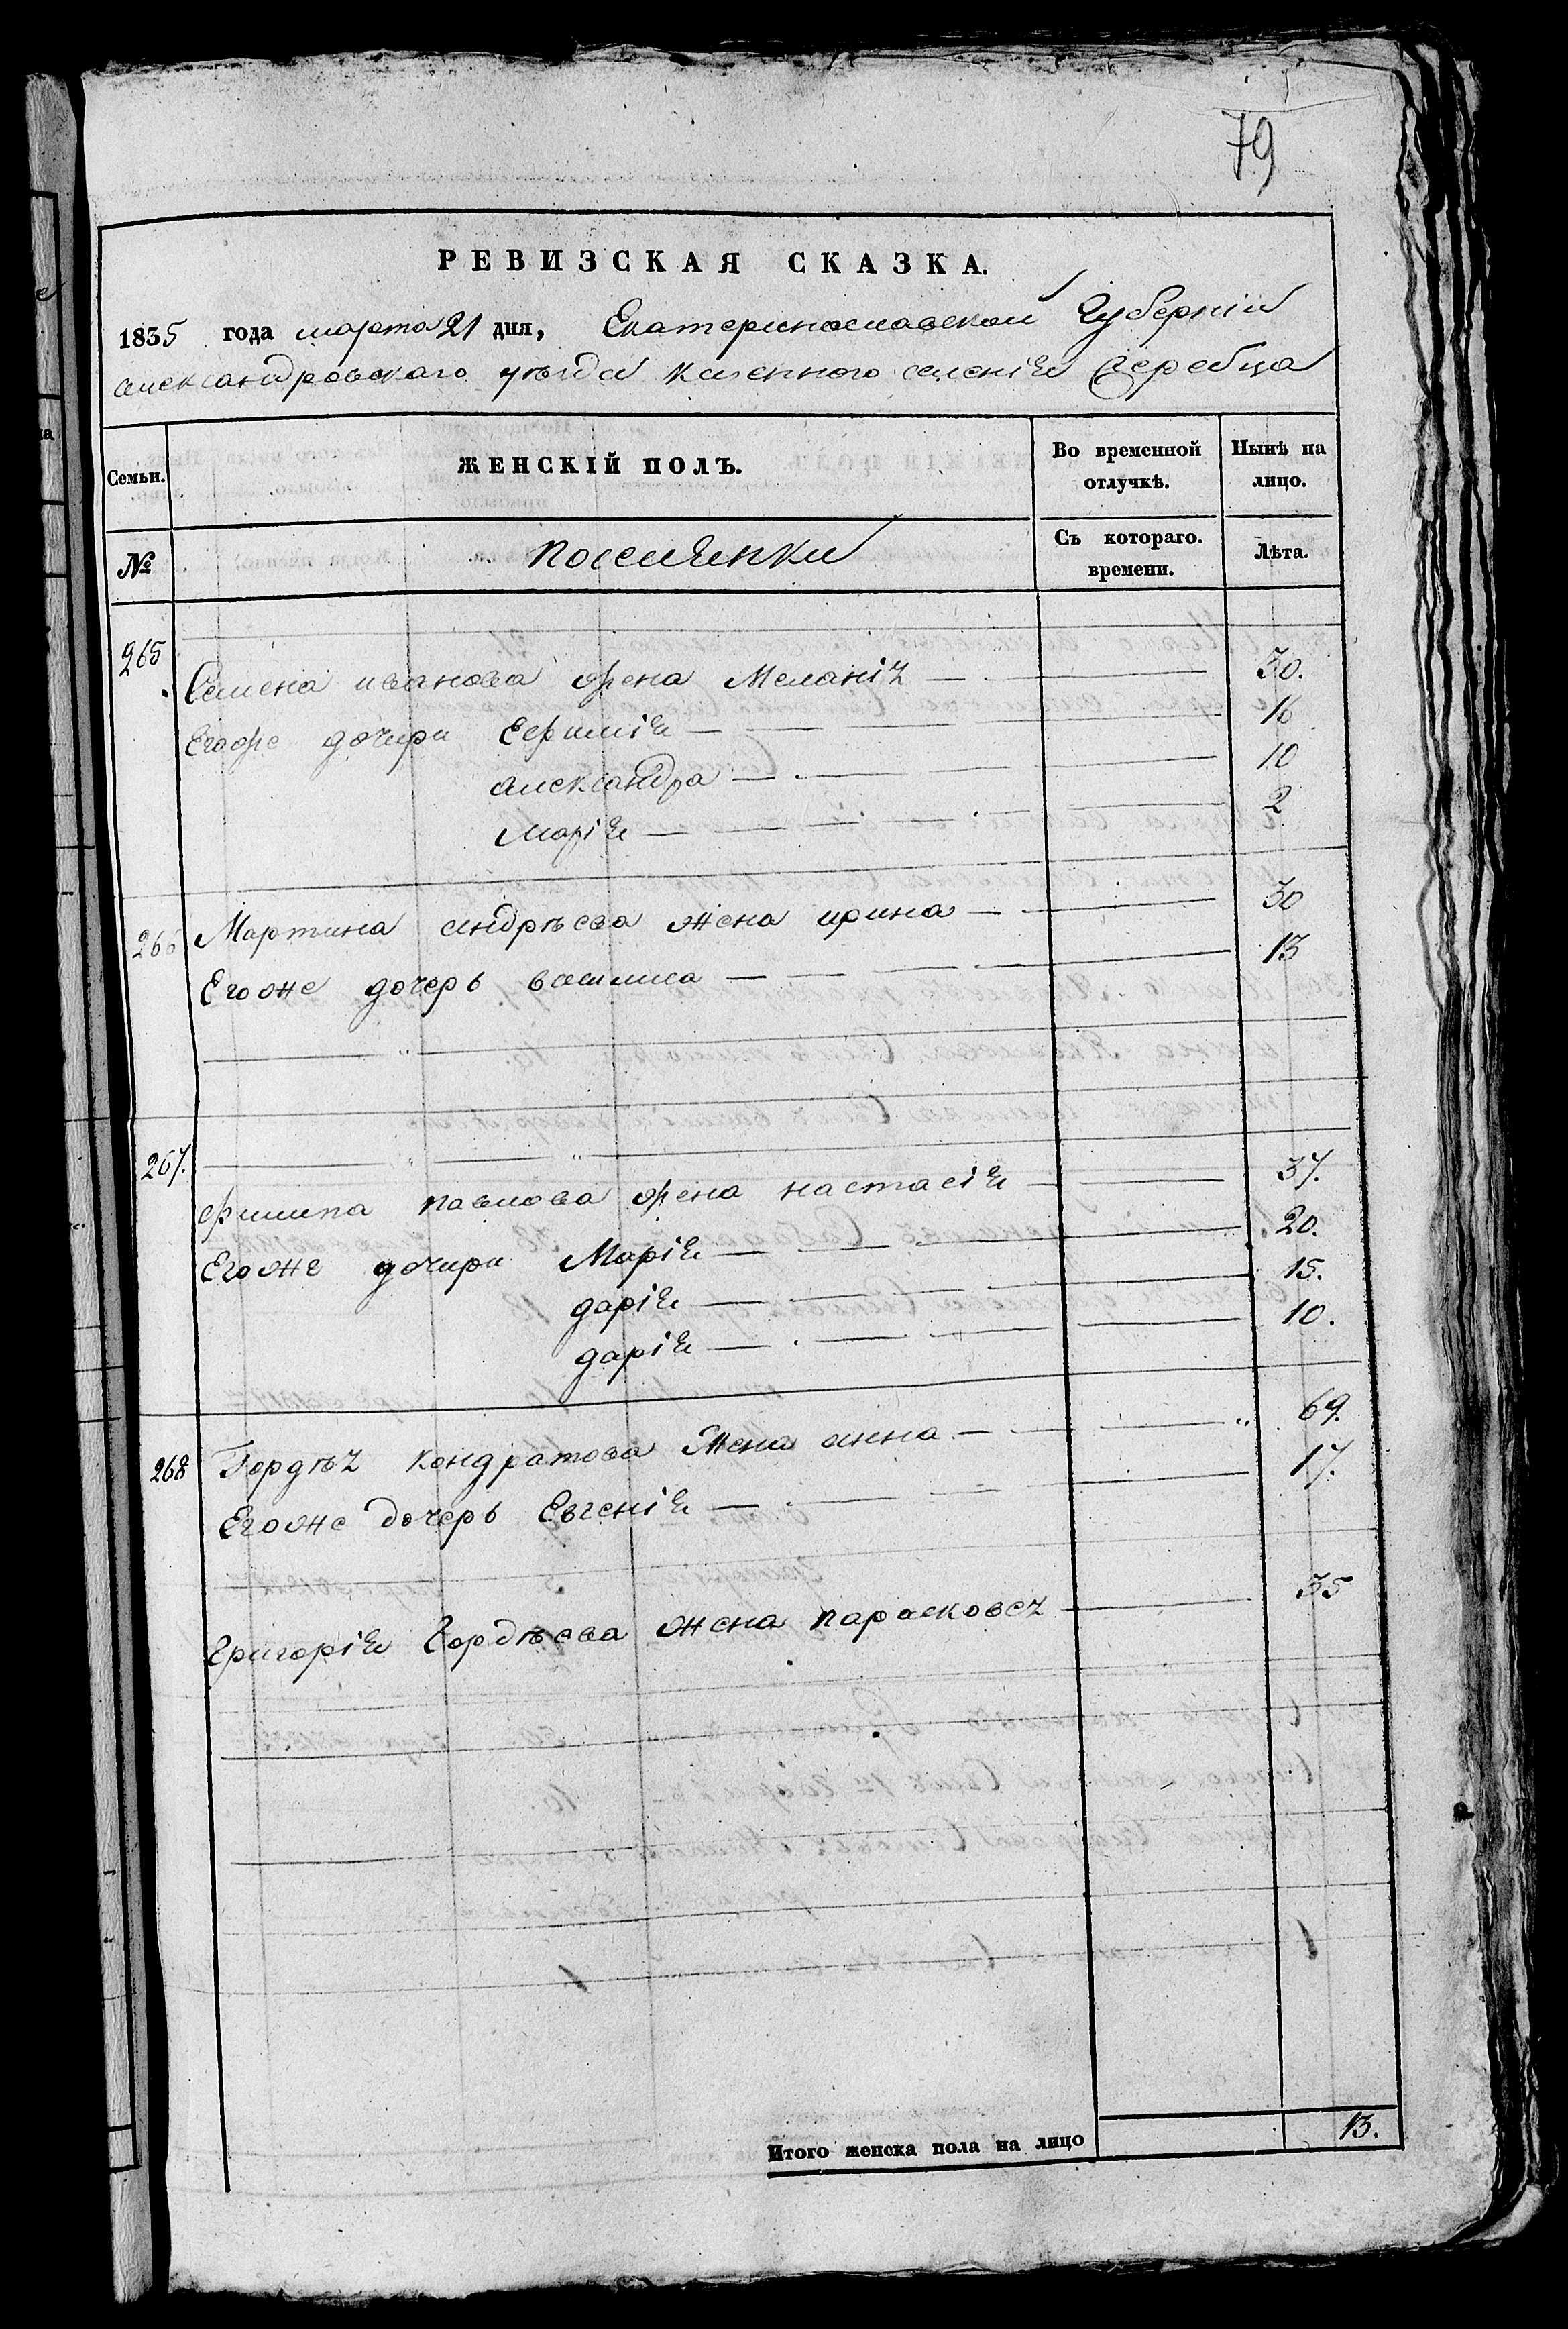 79
РЕВИЗСКАЯ СКАЗКА.
1835 года марта 21 дня, Екатеринославской Губерніи
александровского уѣзда казенного селенія Жеребца
Семьи.
ЖЕНСКІЙ ПОЛЪ.
Во временной отлучкѣ.
Нынѣ на лицо.
№
поселянки
Съ котораго. времени.
Лѣта.
265 Семена иванова жена Меланія 30.
Егоже дочери Ефимія 16
александра 10
Марія 2
266 Мартина андрѣева жена ирина 30
Егоже дочерь василиса 13
267. филипа павлова жена настасія 37.
Егоже дочери Марія 20.
дарія 15.
дарія 10.
268 Гордѣя кондратова жена анна 69.
Егоже дочерь Евгенія 17.
григорія Гордѣева жена парасковея 35
Итого женска пола на лицо 13.